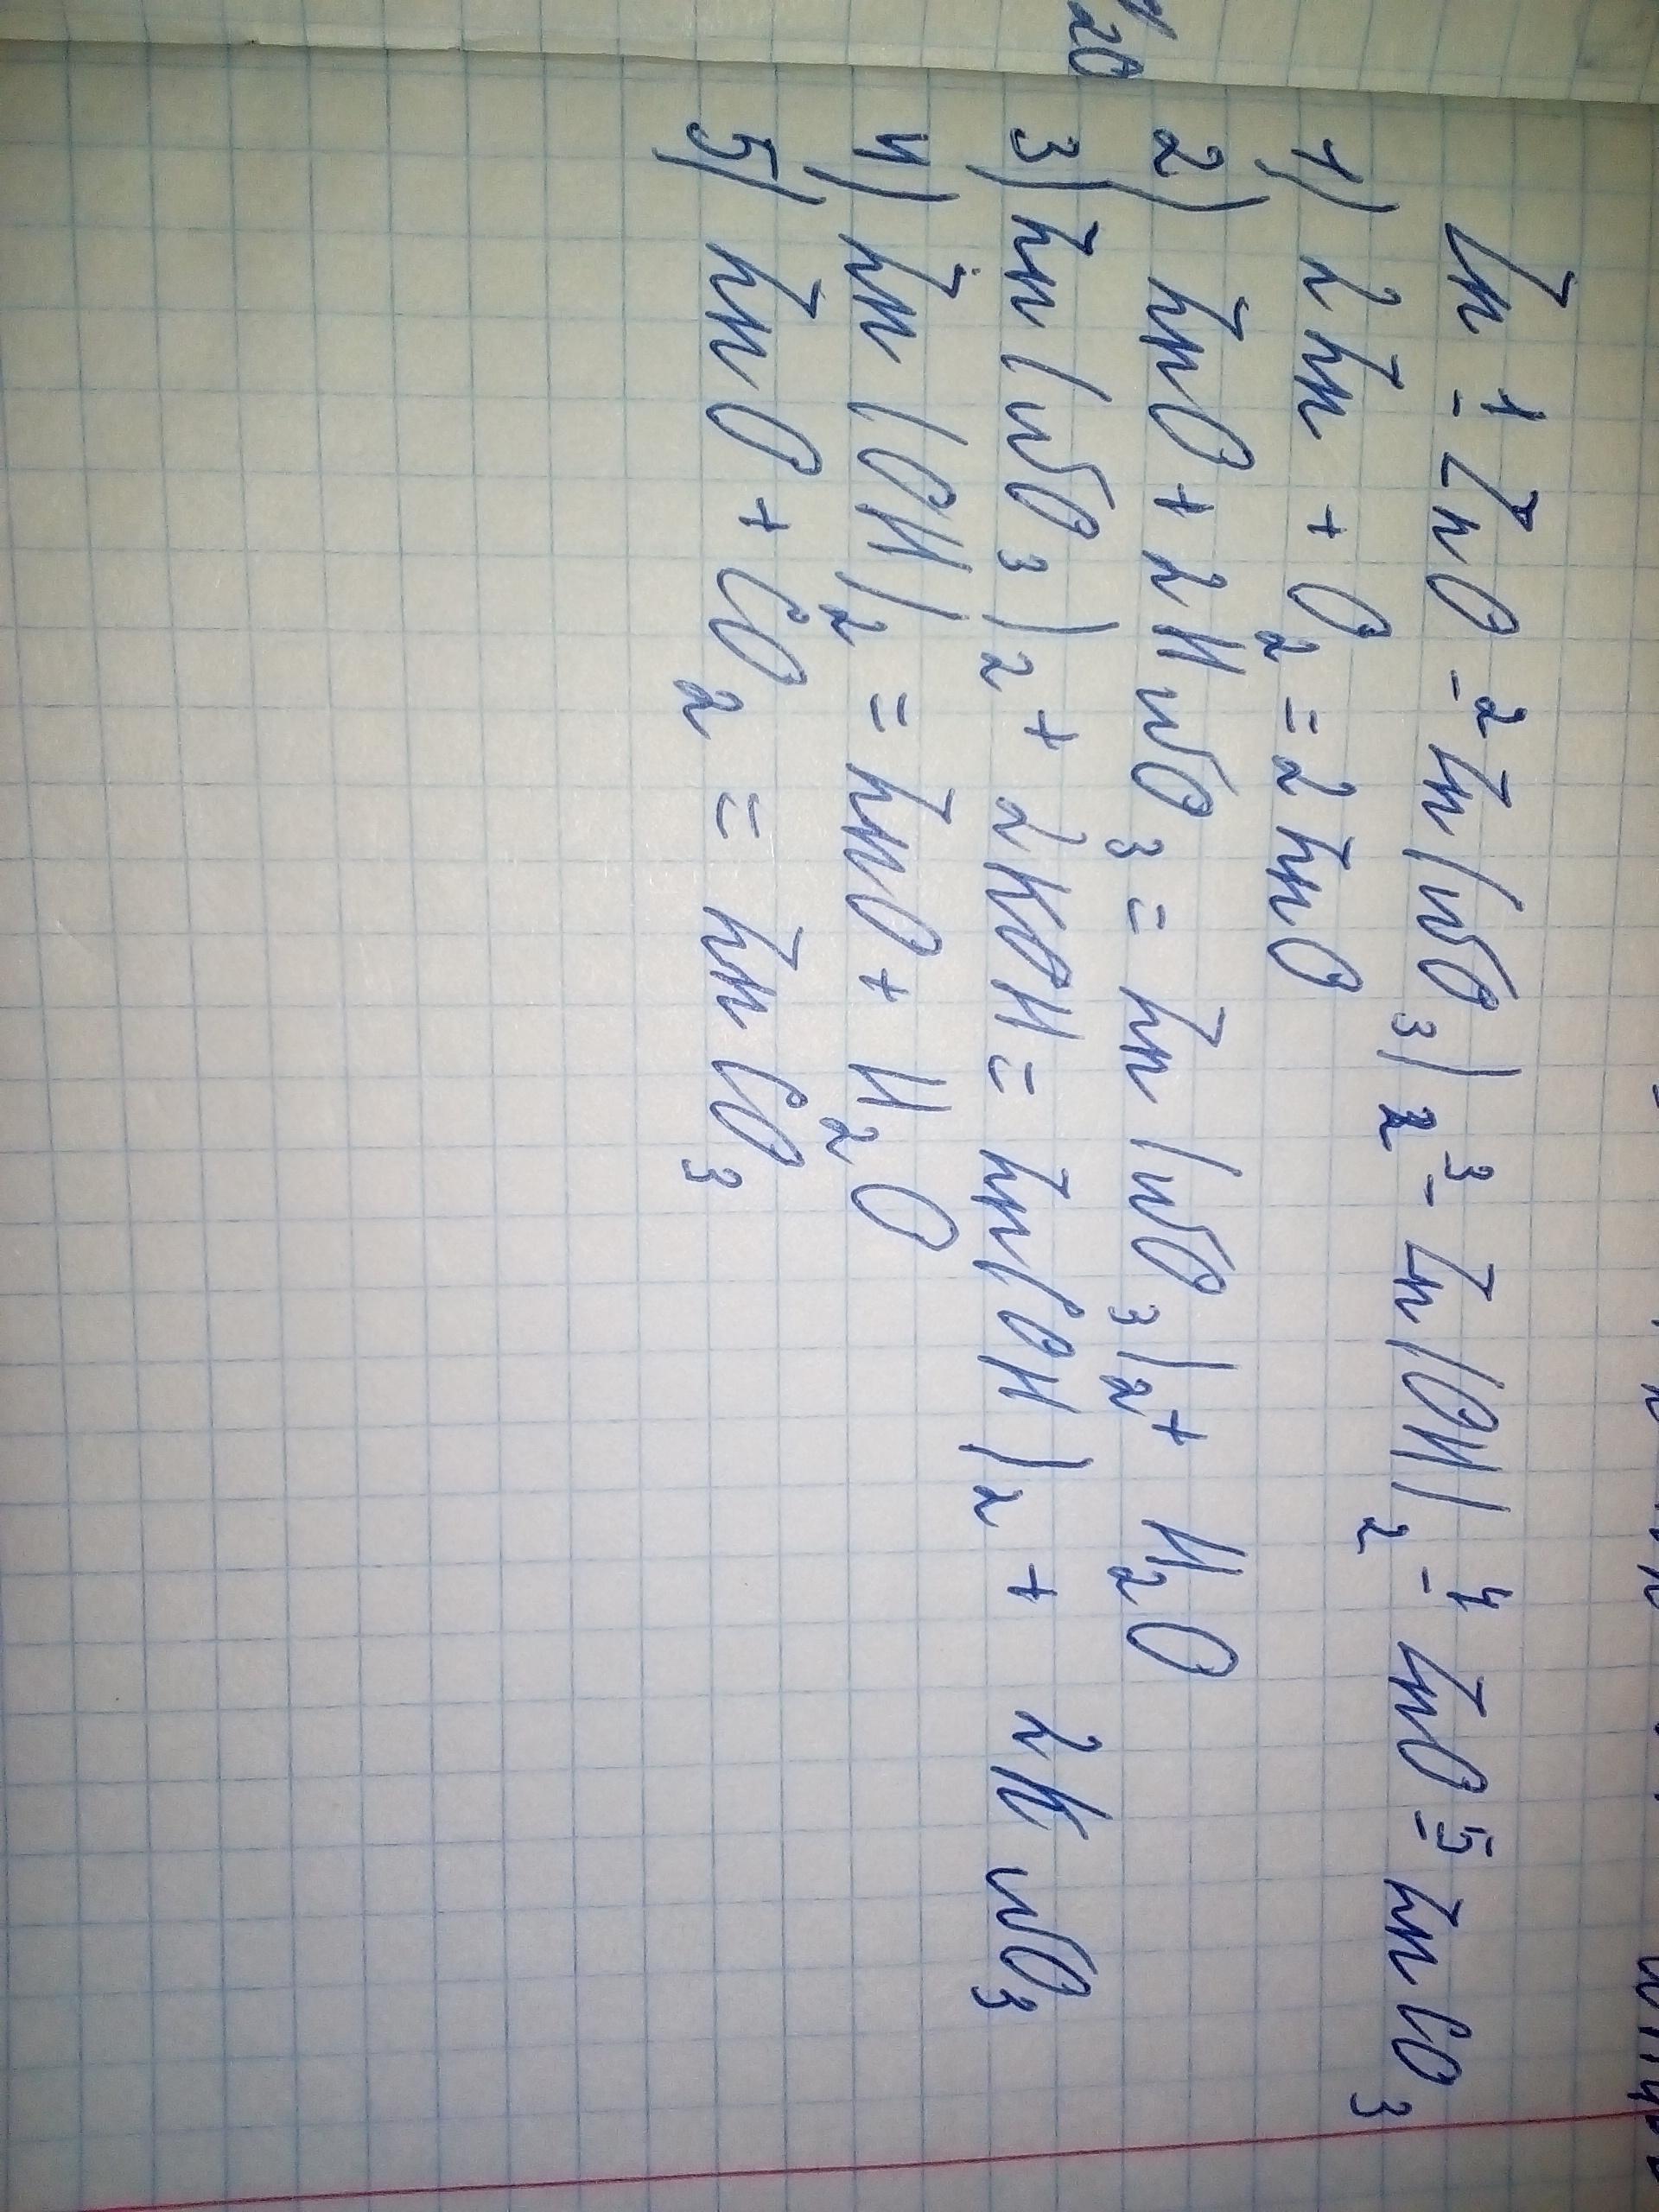 Zn -1 ZnO -2 Zn(NO3)2 3- Zn(OH)2 -4 ZnO -5 ZnCO3
1) 2Zn + O2 = 2ZnO
2) ZnO + 2HNO3 = Zn(NO3)2 + H2O
3) Zn(NO3)2 + 2KOH = Zn(OH)2 + 2KNO3
4) Zn(OH)2 = ZnO + H2O
5) ZnO + CO2 = ZnCO3